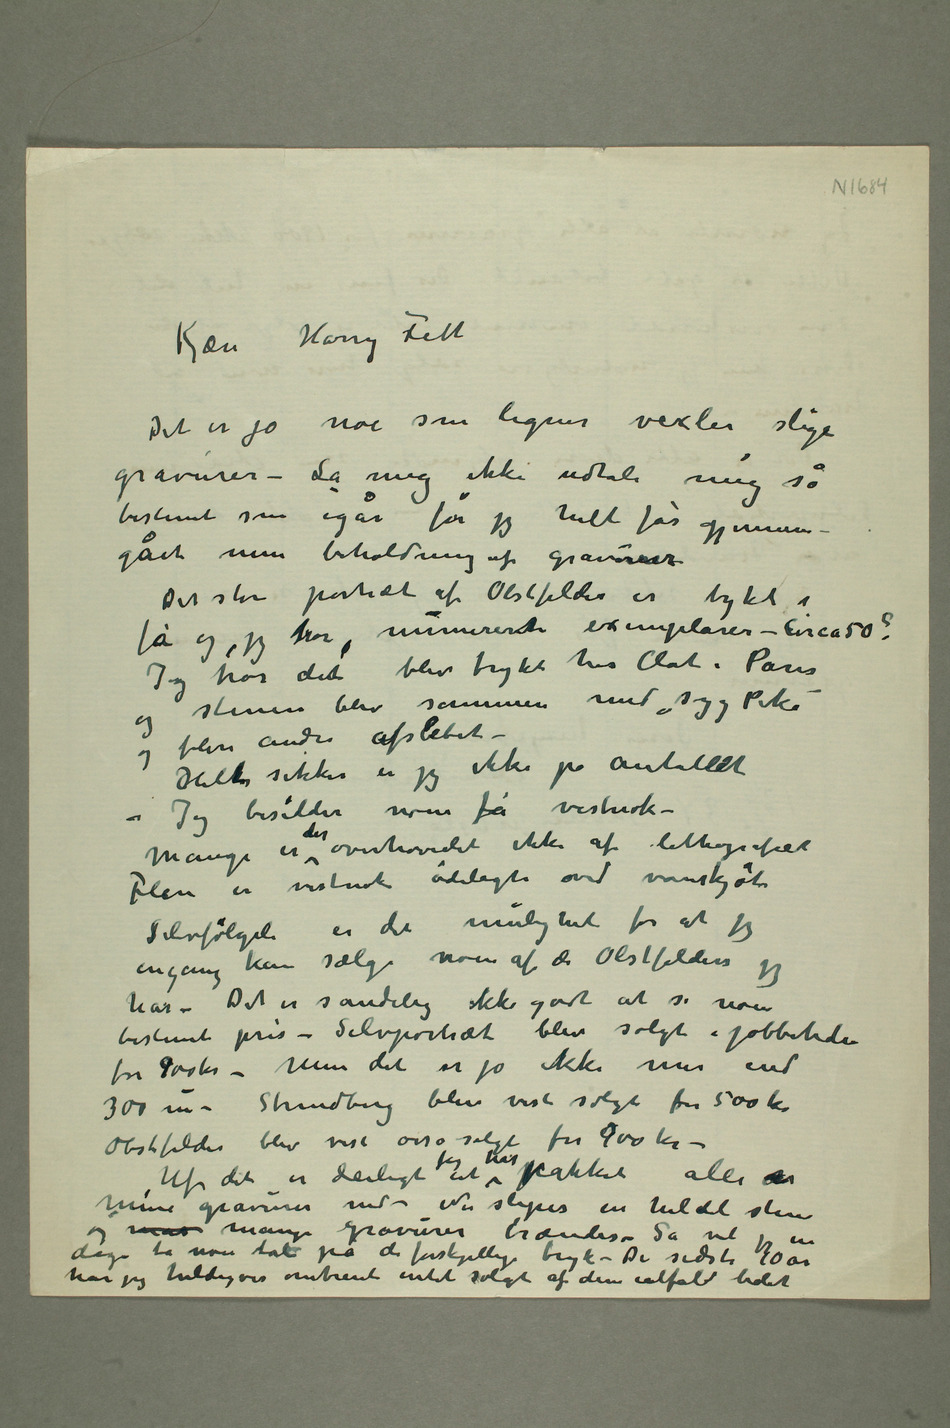 N1684
Kjære Harry Fett
Det er jo noe som ligner vexler slige
gravurer – La mig ikke udtale mig så
bestemt som igår før jeg helt får gjennem-
gået min beholdning af gravurer
Det store portræt af Obstfelder er trykt i
få og, jeg tror, numererte exemplarer – Circa 50?
Jeg tror det blev trykt hos Clot i Paris
og stenen blev sammen med „syg Pike"
og flere andre afslebet –
Helt sikker er jeg ikke på antallet
– Jeg besidder noen få vistnok –
Mange er der overhovedet ikke af lithografiet
Flere er vistnok ødelagte ved vanskjøt
Selvfølgeli er det mulighet for at jeg
engang kan sælge noen af de Obstfeldere jeg
har – Det er sandelig ikke godt at si noen
bestemt pris – Selvportræt blev solgt i jobbetiden
for 900 kr – Men det er jo ikke mer end
300 nu – Strindberg blev vist solgt for 500 kr
Obstfelder blev vist også solgt for 900 kr –
Uf, det er deiligt at jeg har pakket alle
mine gravurer ned – Nu slipes en hel del stene
og mange gravurer brændes – Så vil jeg en
dag ta noen tal på de forskjellige tryk – De sidste 20 år
har jeg heldigvis omtrent intet solgt af dem ialfald lidet